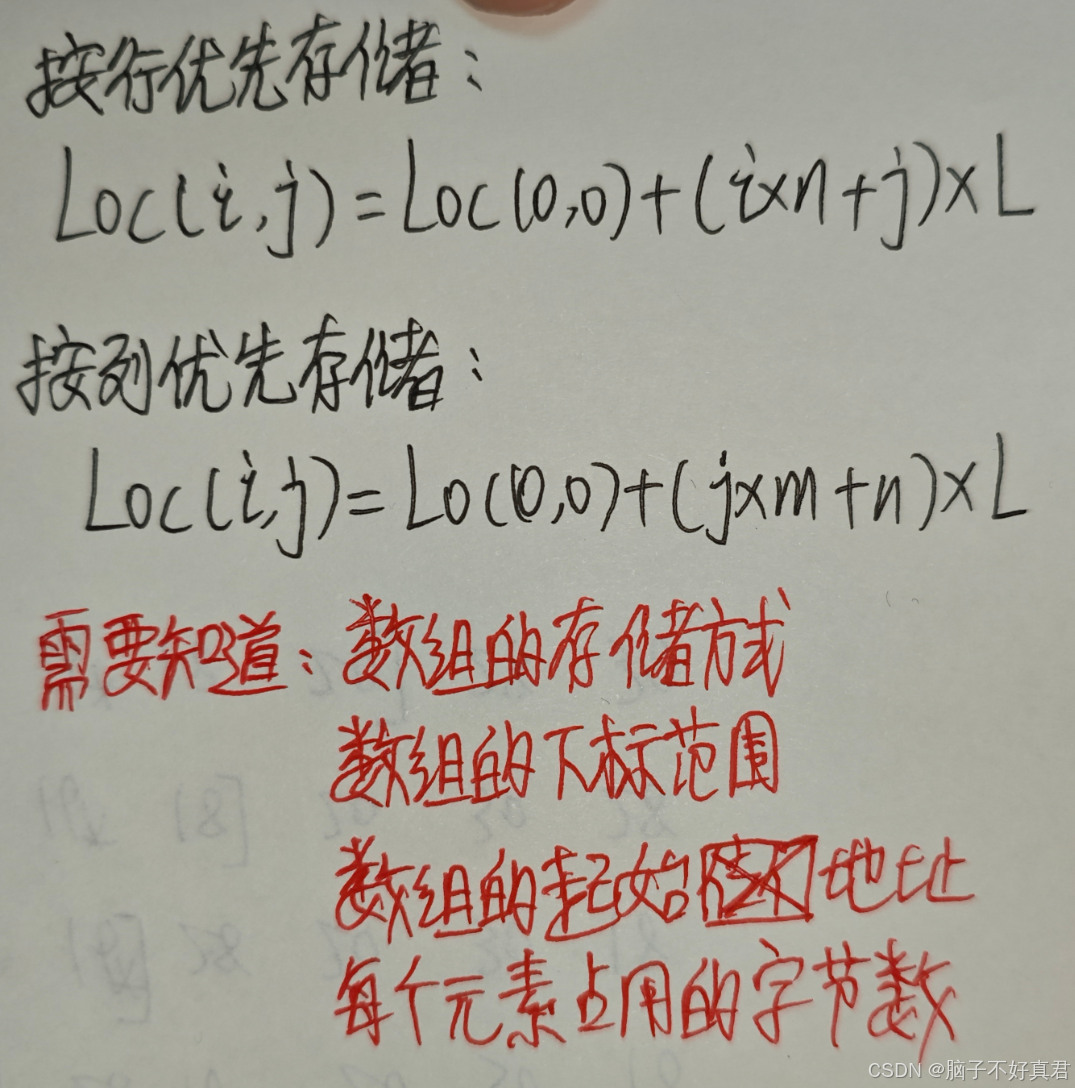 按行优先存储：
Loc(i,j)=Loc(0,0)+(i×n+j)×L
按列优先存储：
Loc(i,j)=Loc(0,0)+(j×m+n)×L
需要知道：数组的存储方式
数组的下标范围
数组的起始地址
每个元素占用的字节数
CSDN @脑子不好真君